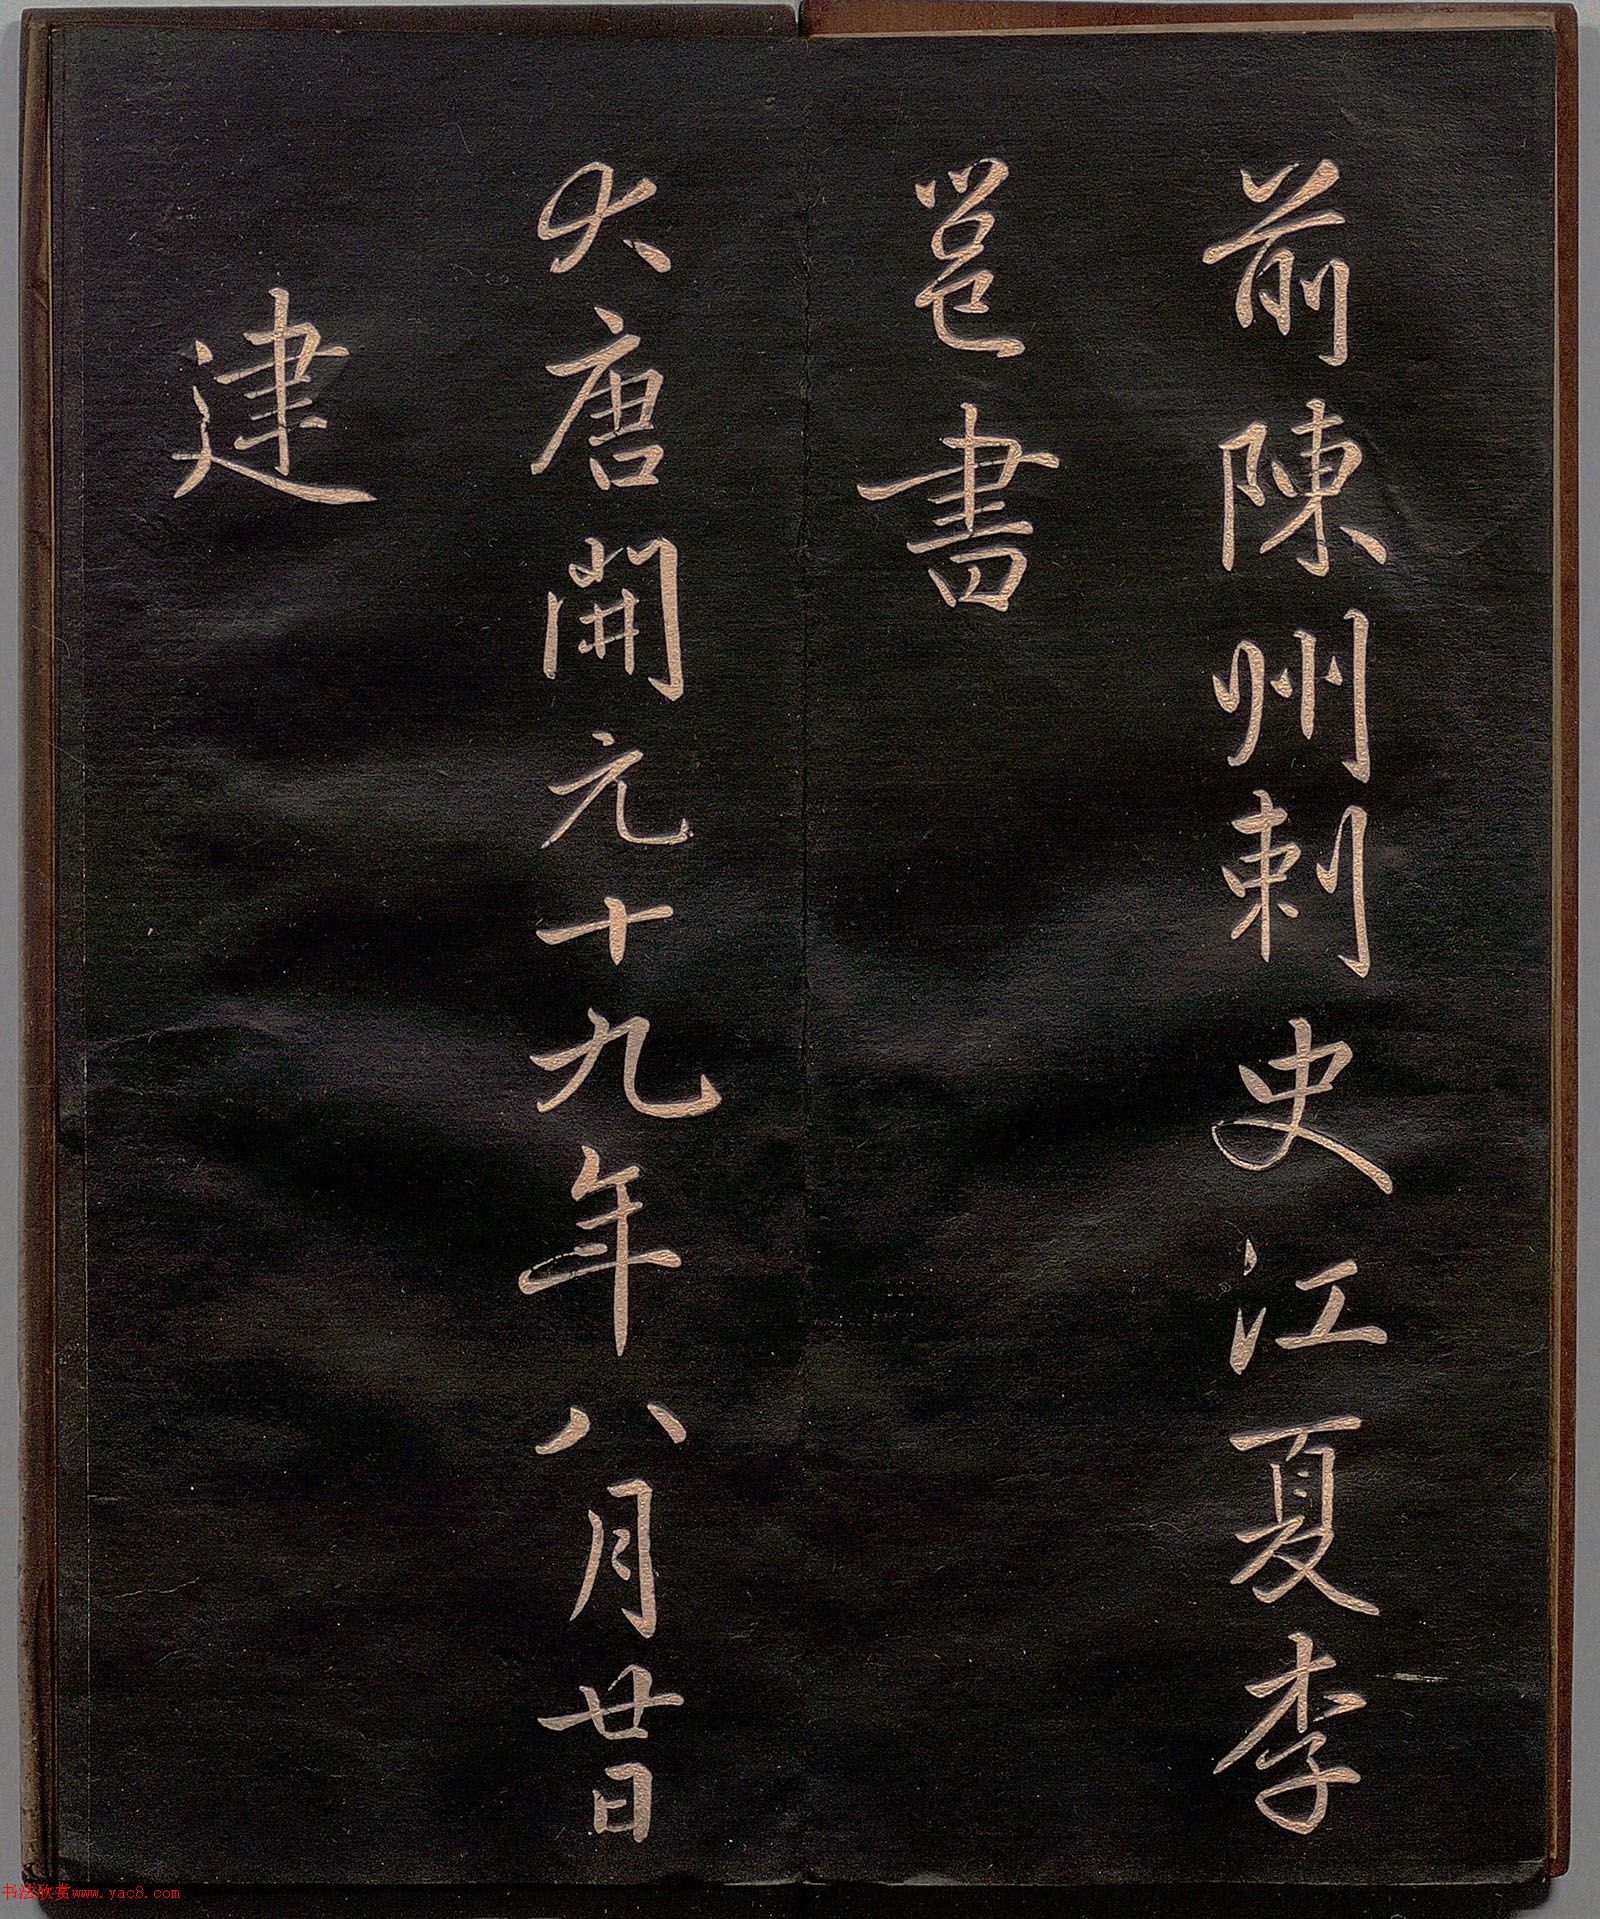 前陳州刺史江夏李
邕書
大唐開元十九年八月廿日
建
书法欣赏www.yac8.com